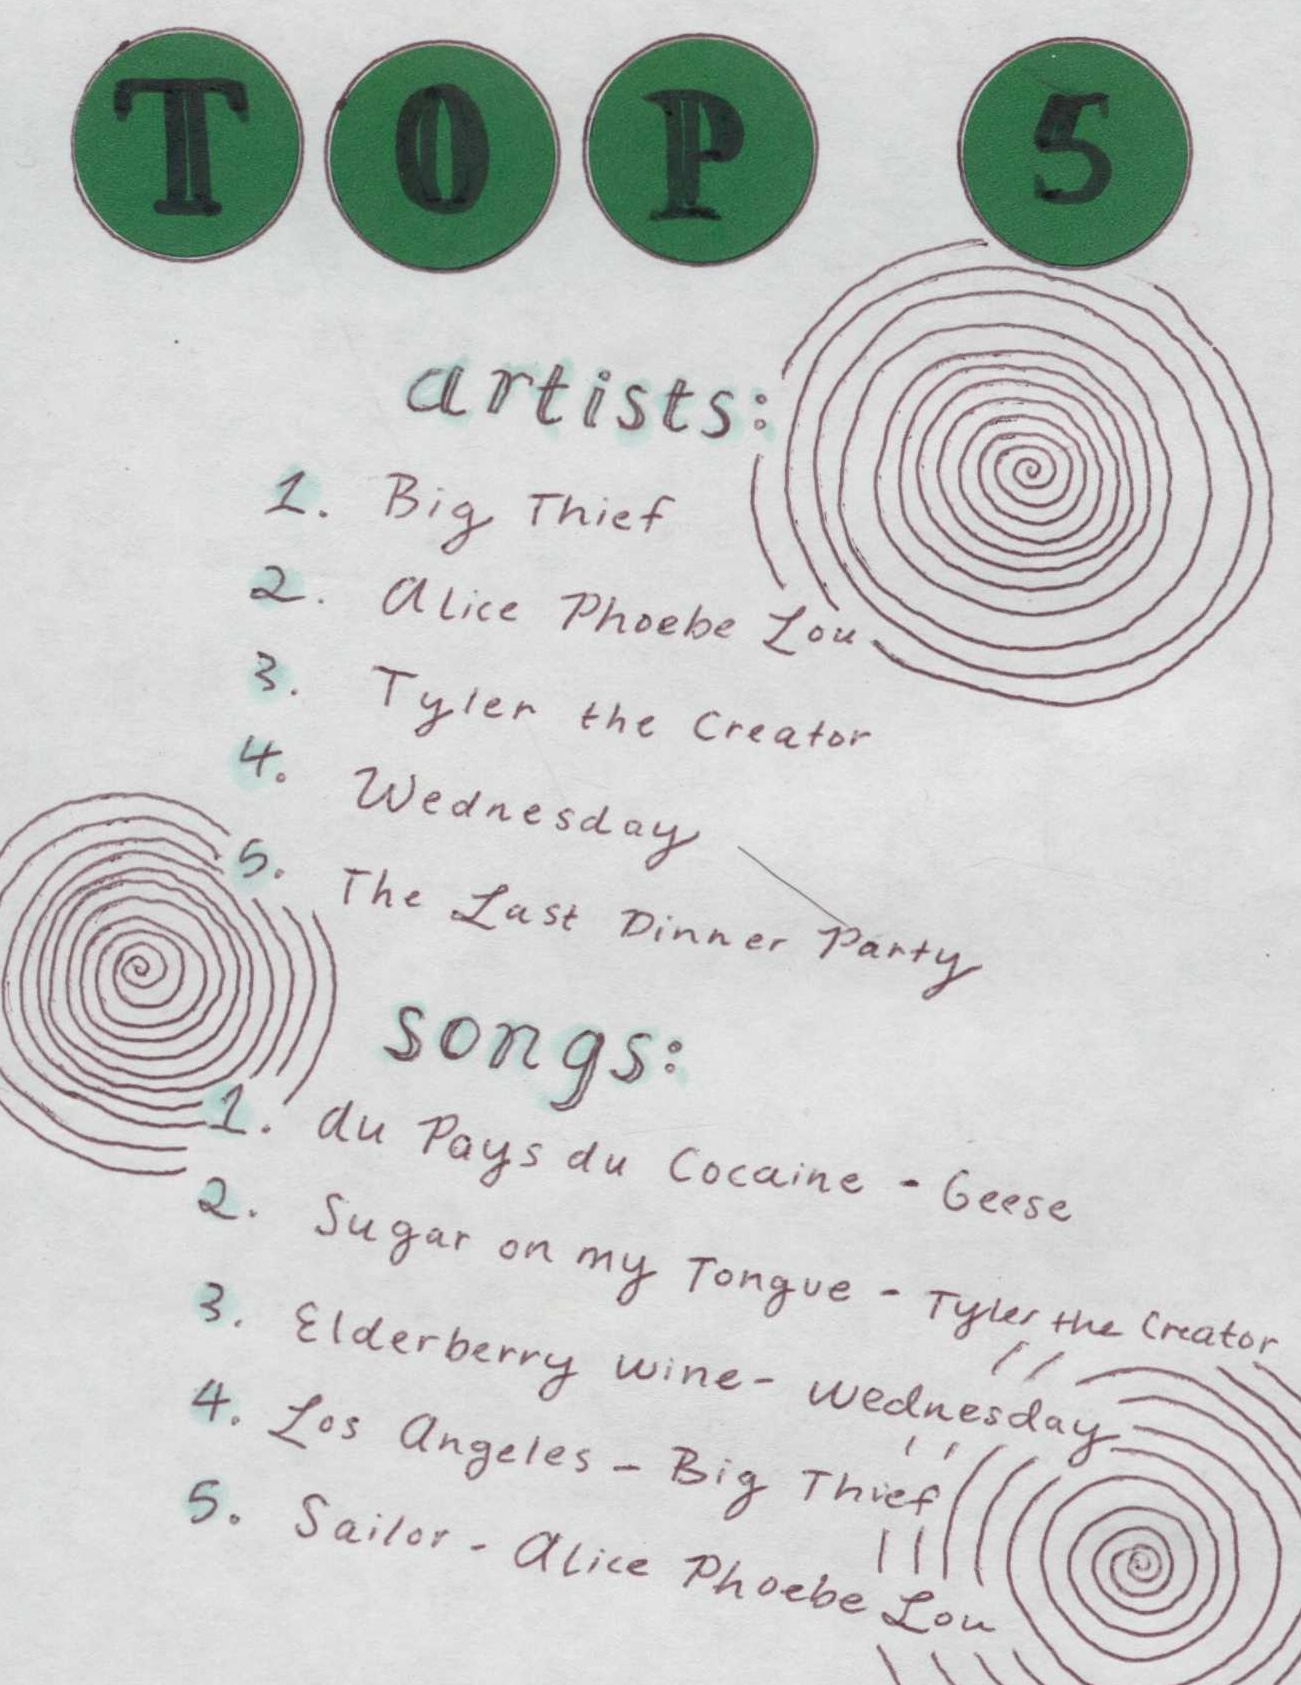 TOP 5
artists:
1. Big Thief
2. Alice Phoebe Lou
3. Tyler the Creator
4. Wednesday
5. The Last Dinner Party
songs:
1. du Pays du Cocaine - Geese
2. Sugar on my Tongue - Tyler the Creator
3. Elderberry wine - Wednesday
4. Los Angeles - Big Thief
5. Sailor - Alice Phoebe Lou